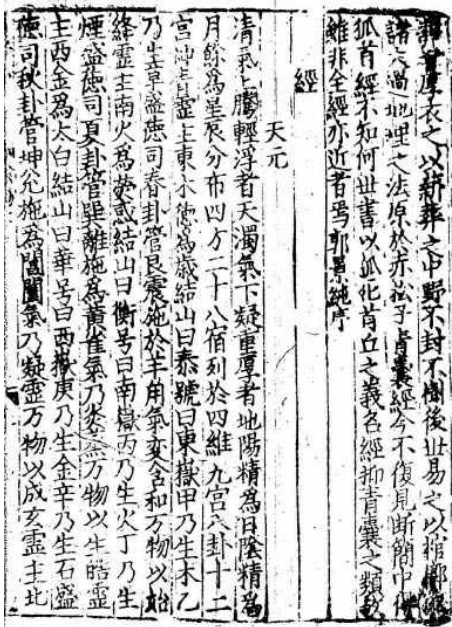 厚衣之以薪葬之中野不封不樹後世易之以棺槨
諸六過地理之法原於赤松子青囊經今不復見断簡中
狐首經不知何世書以狐化首丘之義名經抑青囊之類欤
雖非全經亦近者焉郭景純序
經
天元
清氣上騰輕浮者天濁氣下凝重厚者地陽精為日陰精為
月餘為星辰分布四方二十八宿列於四維九宮八卦十二
宮神青靈主東木德為歲結山曰泰號曰東嶽甲乃生木乙
乃生草盛德司春卦管艮震施於羊角氣変含和万物以始
絳靈主南火為熒惑結山曰衡号曰南嶽丙乃生火丁乃生
煙盛德司夏卦管巽離施為黃雀氣乃炎烈万物以生皓靈
主西金為太白結山曰華号曰西嶽庚乃生金辛乃生石盛
德司秋卦管坤兊施為閶闔氣乃凝靈万物以成玄靈主北